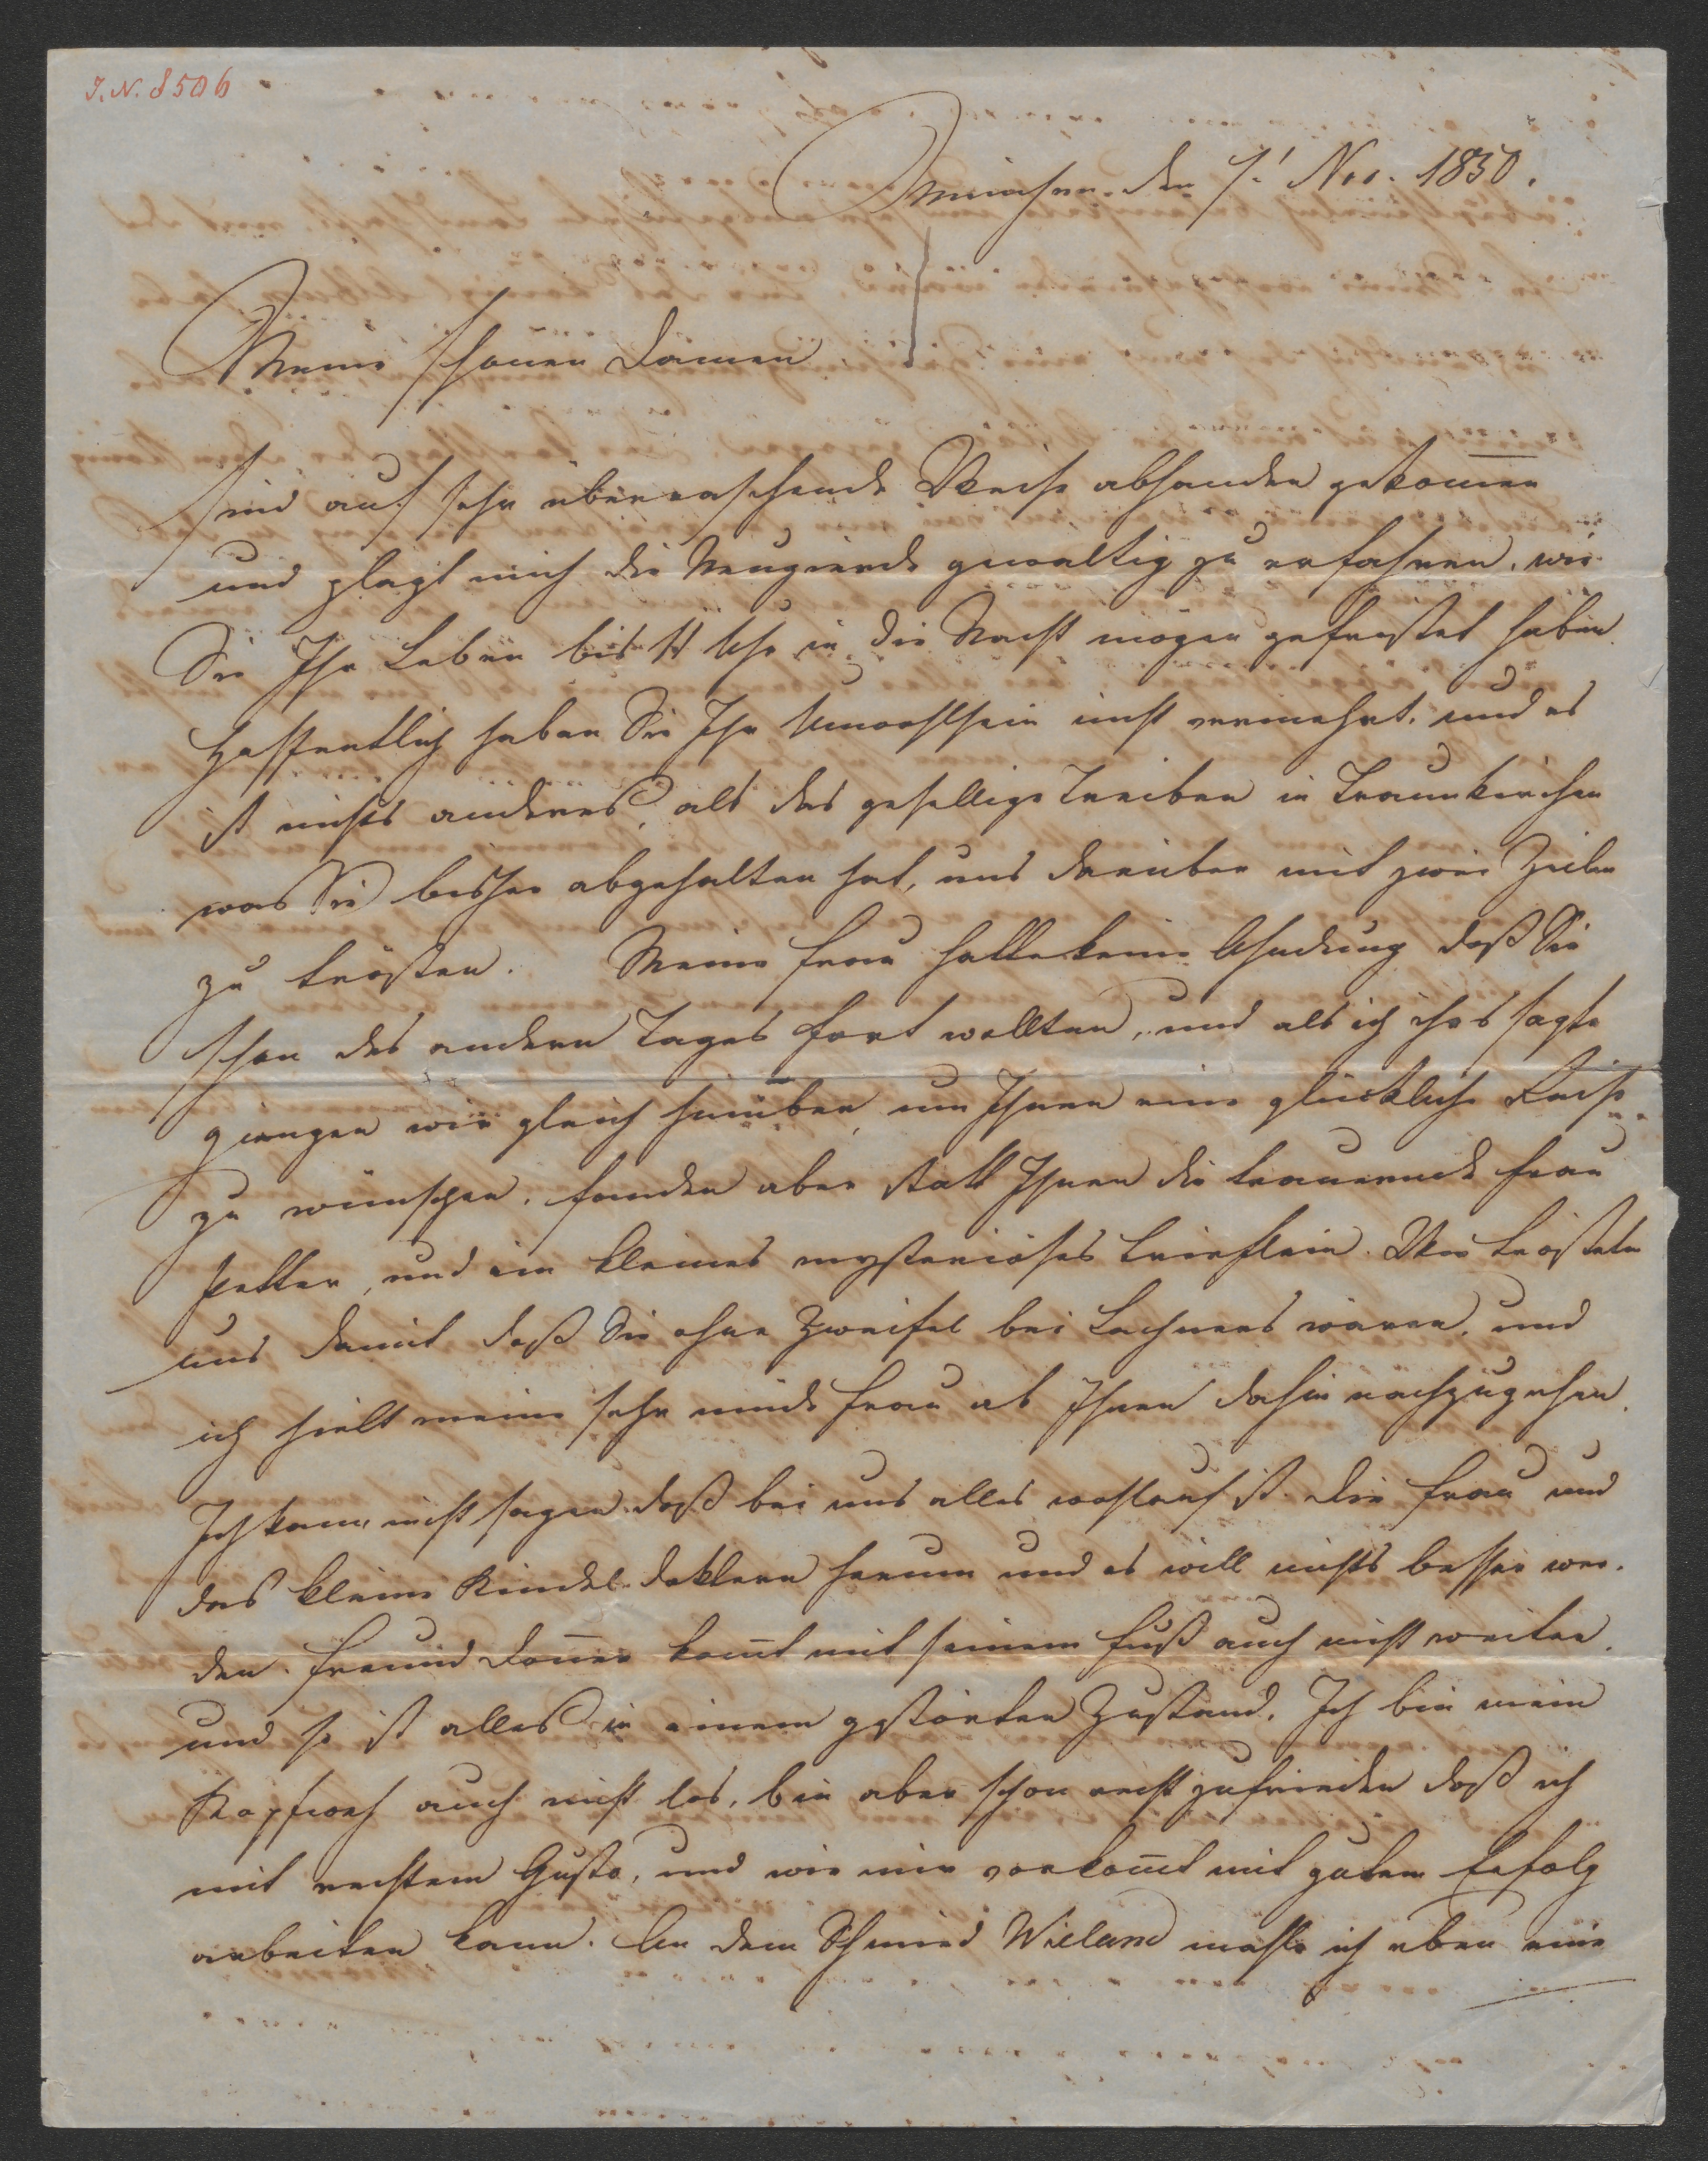 I.N. 8506
München den 7' Nov. 1850.
Meine schönen Damen
sind auf sehr überraschende Weise abhanden gekom̄en
und plagt mich die Neugierde gewaltig zu erfahren, wie
Sie Ihr Leben bis 11 Uhr in die Nacht mögen gefristet haben.
Hoffentlich haben Sie Ihr Unwohlsein nicht vermehrt, und es
ist nichts anderes, als das gesellige Treiben in Traunkirchen
was Sie bisher abgehalten hat, uns darüber mit zwei Zeilen
zu trösten. Meine Frau hatte keine Ahndung daß Sie
schon des andern Tages fort wollten, und als ich ihrs sagte
giengen wir gleich hinüber um Ihnen eine glückliche Reise
zu wünschen, fanden aber statt Ihnen die trauernde Frau
und ein kleines mysteriöses Brieflein. Wir trösteten
uns damit daß Sie ohne Zweifel bei Lachners wären, und
ich hielt meine sehr müde Frau ab Ihnen dahin nachzugehen.
Ich kann nicht sagen daß bei uns alles wohlauf ist. Die Frau und
das kleine Kindel doktern herum und es will nichts besser wer-
den. Freund kom̄t mit seinem Fuß auch nicht weiter.
und so ist alles in einem gestörten Zustand. Ich bin mein
Kopfweh auch nicht los, bin aber schon recht zufrieden daß ich
mit rechtem Gusto, und wie mir vorkom̄t mit gutem Erfolg
arbeiten kann. An dem Schmied Wieland mahle ich eben eine